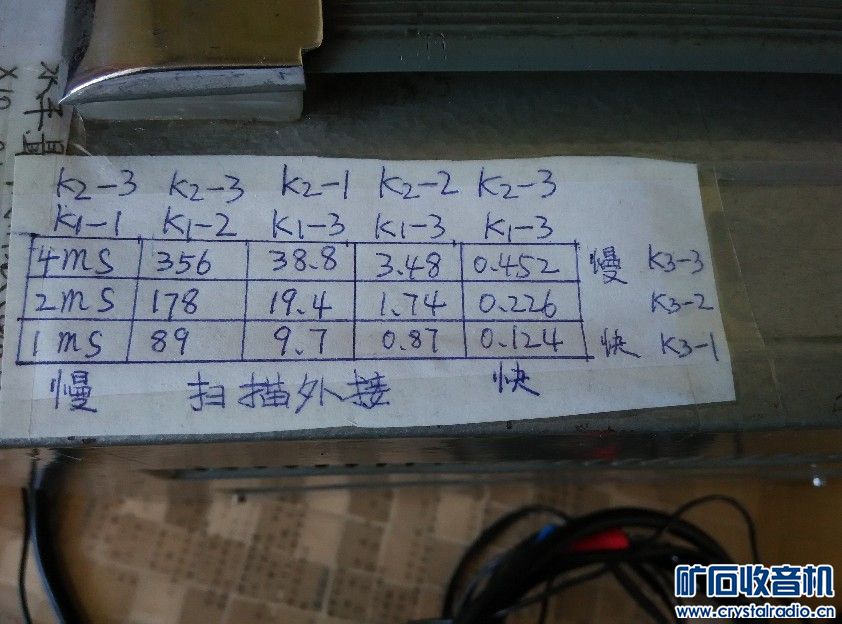 K2-3 K2-3 K2-1 K2-2 K2-3
K1-1 K1-2 K1-3 K1-3 K1-3
4ms 356 38.8 3.48 0.452 慢 K3-3
2ms 178 19.4 1.74 0.226 K3-2
1ms 89 9.7 0.87 0.124 快 K3-1
慢 扫描外接 快
水平
X10
矿石收音机
www.crystalradio.cn